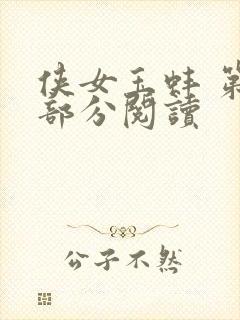 侠女玉蚌 第
部分閱讀
公子不然